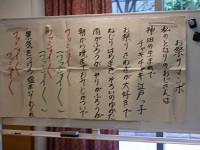 お祭りマンボ
私のとなりのおじさんは
神田の生まれで
チャキチャキ江戸っ子
お祭りさわぎが大好きで
ねじりはちまきそろいのゆかた
雨がふろうがヤリがふろうが
朝から晩までおみこしかついで
ワッショイワッショイ
ワッショイワッショイ
景気をつけろ塩まいておくれ
ワッショイワッショイ
ワッショイワッショイ